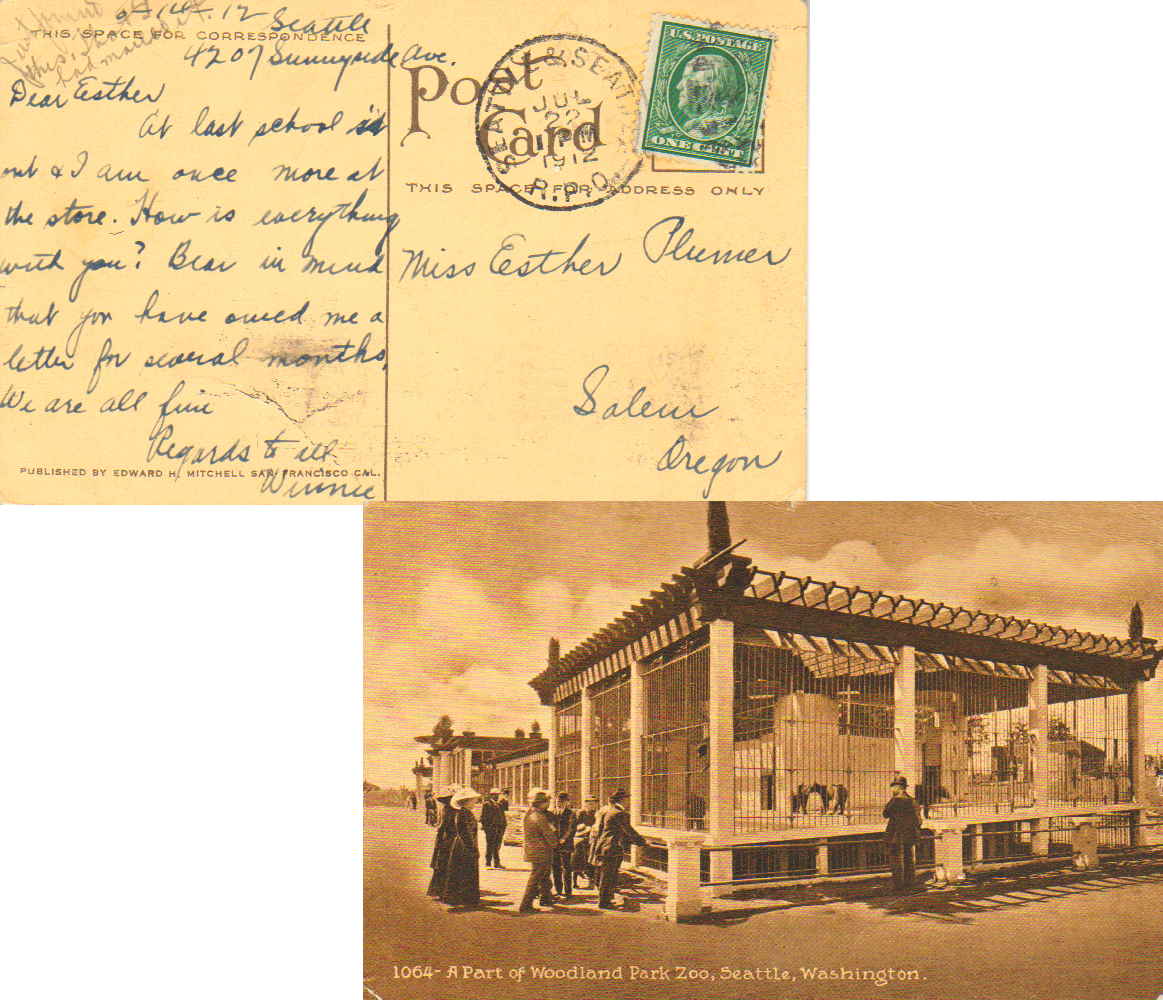 THIS SPACE FOR CORRESPONDENCE
Seattle
4207 Sunnyside Ave.
Dear Esther
At last school is
out & I am once more at
the store. How is everything
with you? Bear in mind
that you have owed me a
letter for several months,
We are all fine
Regards to all
Winnie
PUBLISHED BY EDWARD H. MITCHELL SAN FRANCISCO CAL.
Post
Card
SEATTLE
JUL
22
PM
1912
R.P.O.
U.S. POSTAGE
ONE CENT
THIS SPACE FOR ADDRESS ONLY
Miss Esther Plumer
Salem
Oregon
1064- A Part of Woodland Park Zoo, Seattle, Washington.